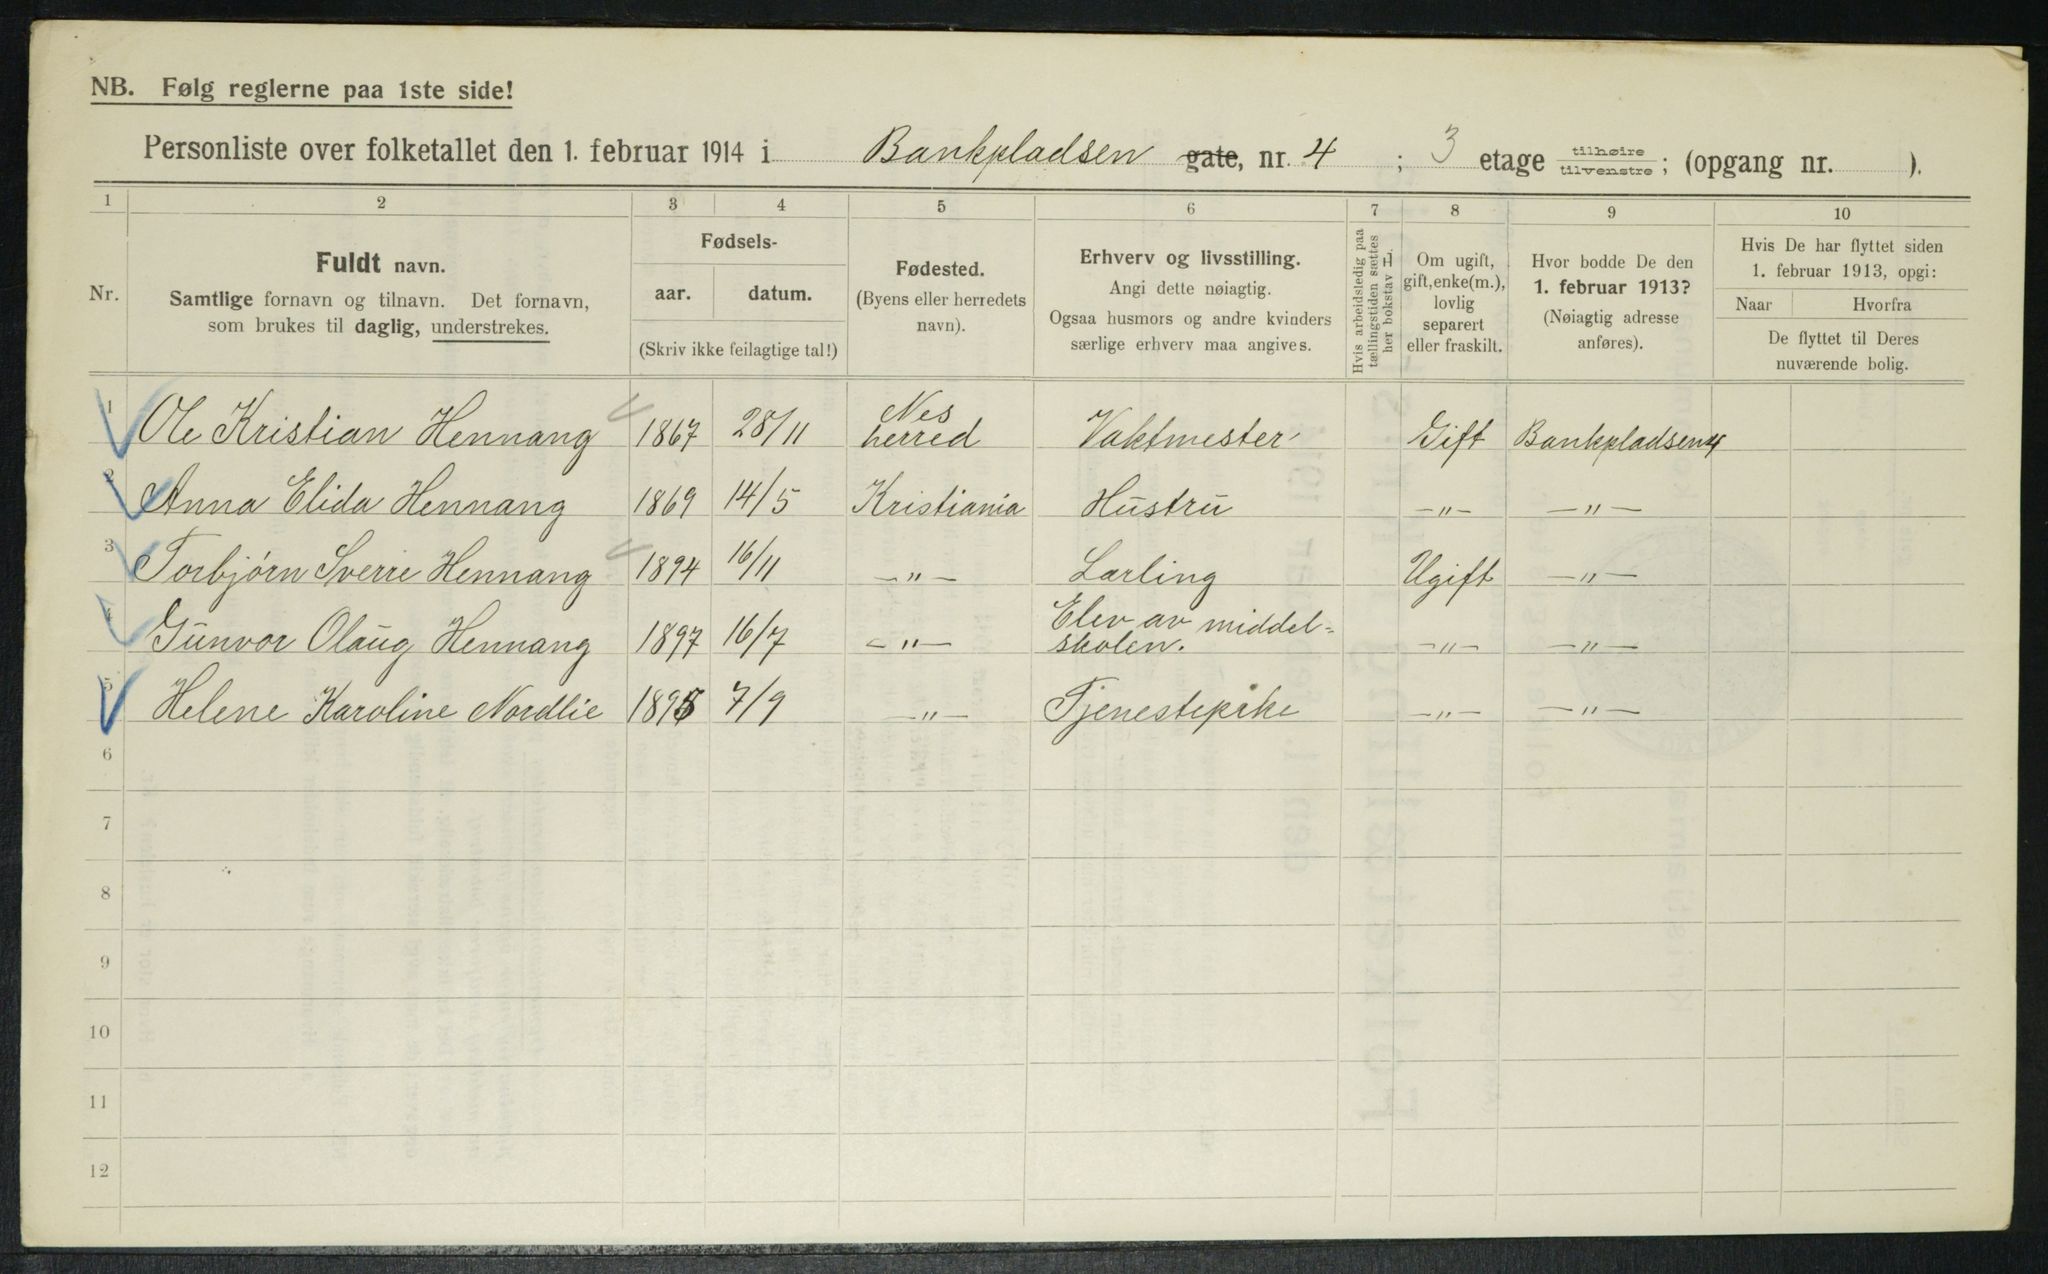 NB. Følg reglerne paa 1ste side!
Personliste over folketallet den 1. februar 1914 i Bankpladsen gate, nr. 4 ; 3 etage tilhøire tilvenstre; (opgang nr. ).
1 2 3 4 5 6 7 8 9 10
Nr.
Fuldt navn.
Samtlige fornavn og tilnavn. Det fornavn,
som brukes til daglig, understrekes.
Fødsels-
aar. datum.
(Skriv ikke feilagtige tal!)
Fødested.
(Byens eller herredets
navn).
Erhverv og livsstilling.
Angi dette nøiagtig.
Ogsaa husmors og andre kvinders
særlige erhverv maa angives.
Hvis arbeidsledig paa
tællingstiden sættes
her bokstav L.
Om ugift,
gift, enke(m.),
lovlig
separert
eller fraskilt.
Hvor bodde De den
1. februar 1913?
(Nøiagtig adresse
anføres).
Hvis De har flyttet siden
1. februar 1913, opgi:
Naar Hvorfra
De flyttet til Deres
nuværende bolig.
1 Ole Kristian Hennang 1867 28/11 Nes herred Vaktmester Gift Bankpladsen 4
2 Anna Elida Hennang 1869 14/5 Kristiania Hustru —"— —"—
3 Torbjørn Sverre Hennang 1894 16/11 —"— Lærling Ugift —"—
4 Gunvor Olaug Hennang 1897 16/7 —"— Elev av middel=
skolen. —"— —"—
5 Helene Karoline Nordlie 1895 7/9 —"— Tjenestepike —"— —"—
6
7
8
9
10
11
12